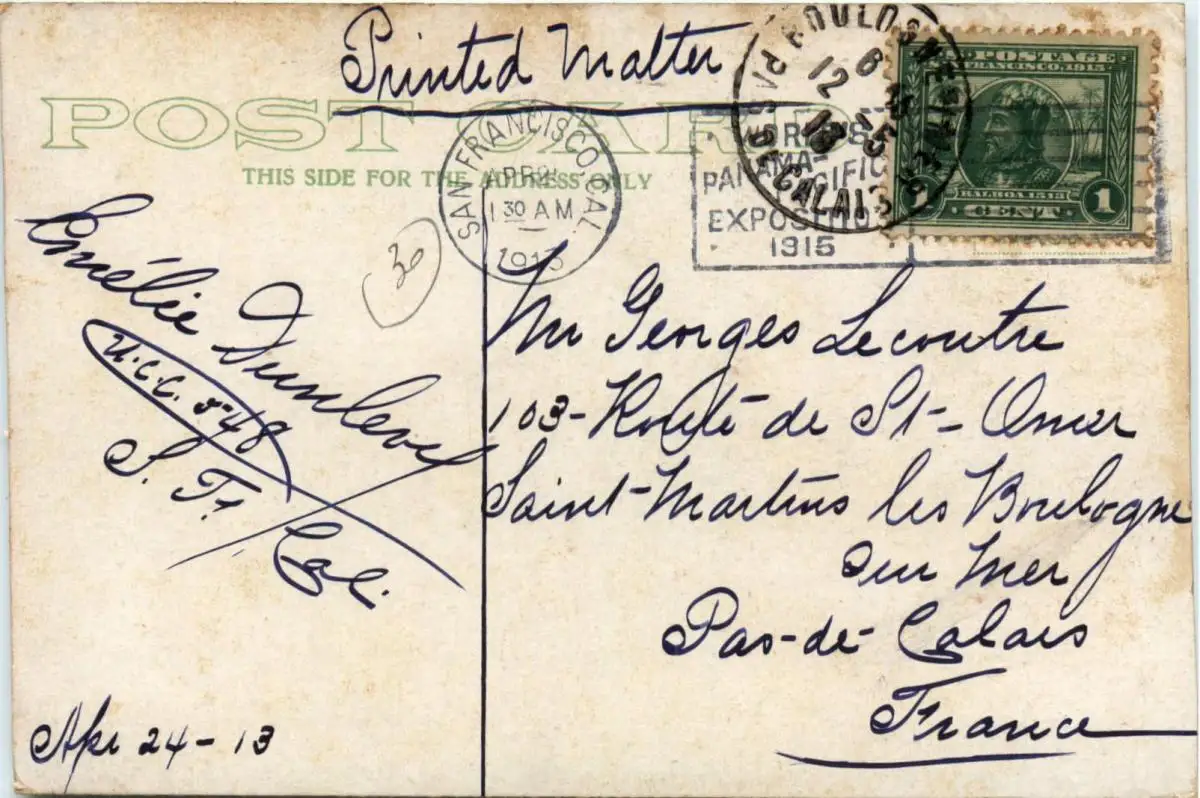 Printed Matter
POST CARD
THIS SIDE FOR THE ADDRESS ONLY
SAN FRANCISCO, CAL.
APR 2
1 30 AM
1913
PANAMA-PACIFIC
EXPOSITION
1915
BOULOGNE-S-MER
PAS DE CALAIS
12
13
POSTAGE
FRANCISCO, 1915
BALBOA 1513
1 CENT 1
30
Emélie Dunleavy
U.C.C. 548
S. F. Cal.
Apr 24-13
Mr Georges Lecoutre
103-Route de St-Omer
Saint-Martins les Boulogne
sur Mer
Pas-de-Calais
France